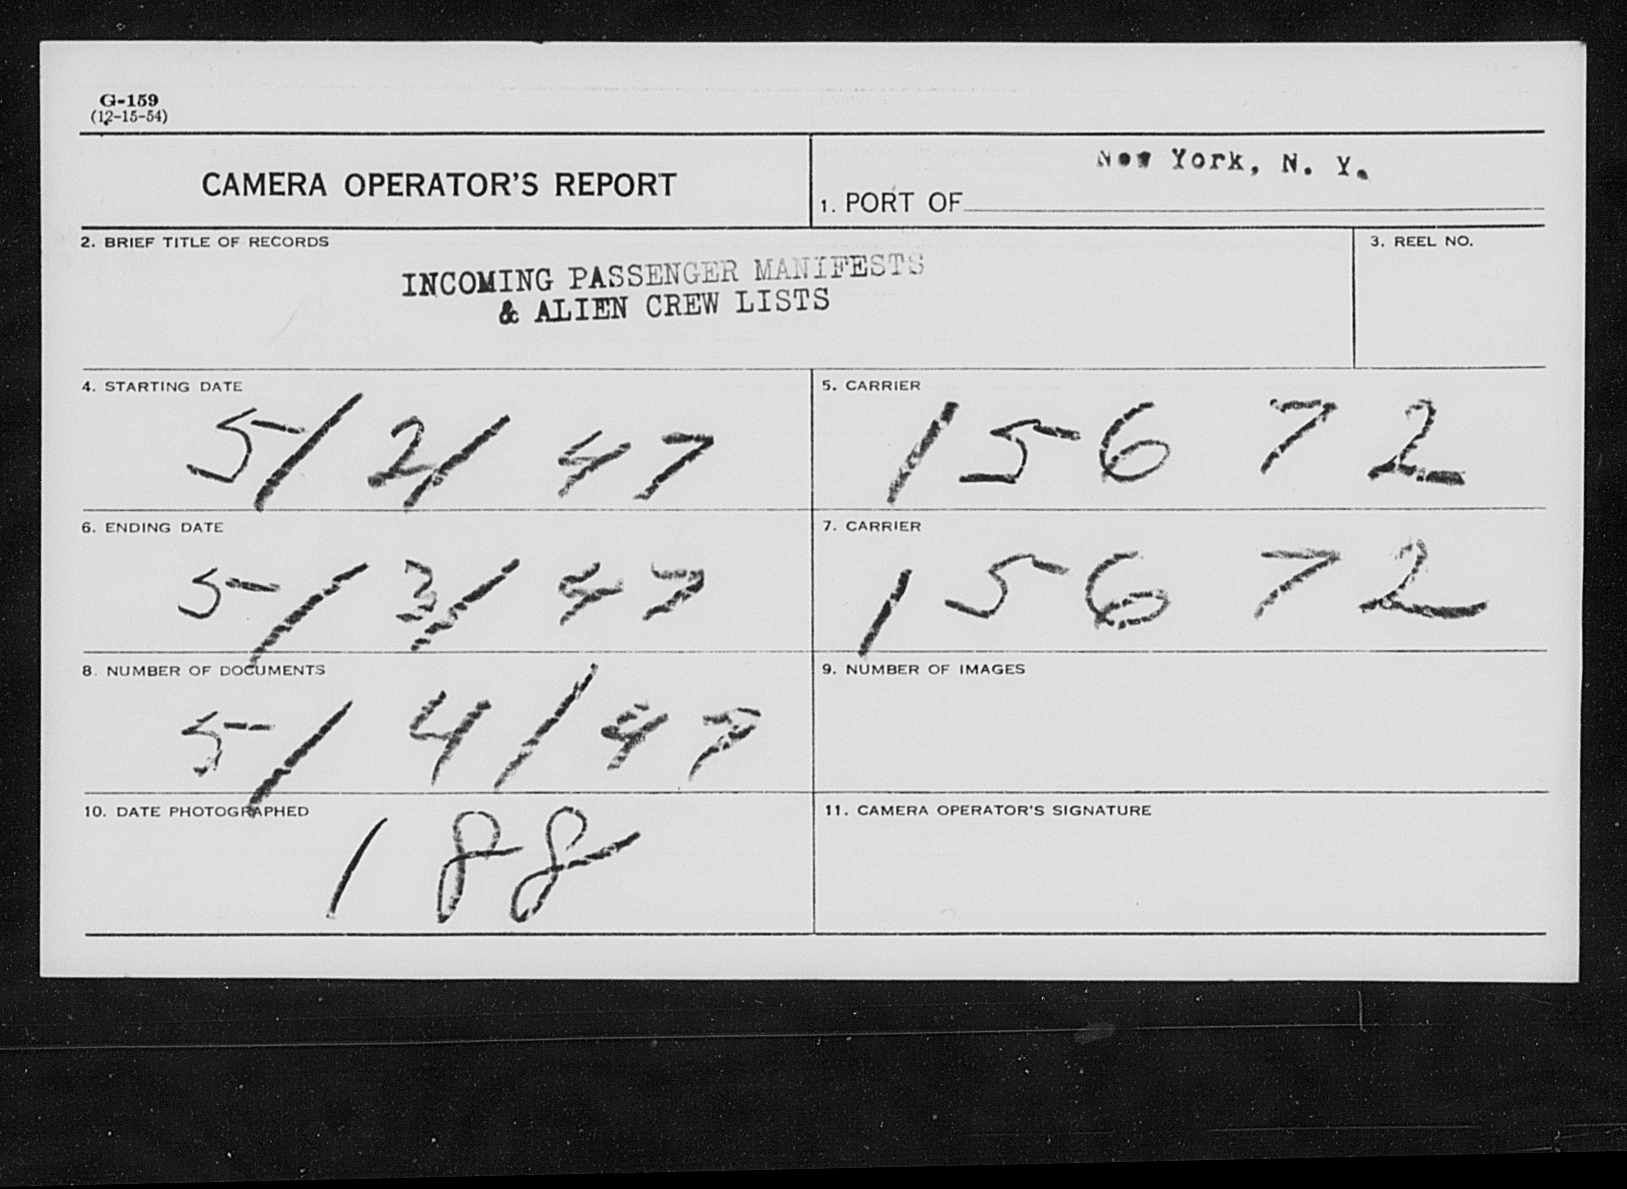 G-159
(12-15-54)
CAMERA OPERATOR'S REPORT
New York, N. Y.
1. PORT OF
2. BRIEF TITLE OF RECORDS
INCOMING PASSENGER MANIFESTS
& ALIEN CREW LISTS
3. REEL NO.
4. STARTING DATE
5/2/47
5. CARRIER
15672
6. ENDING DATE
5/3/47
7. CARRIER
15672
8. NUMBER OF DOCUMENTS
5/4/47
9. NUMBER OF IMAGES
10. DATE PHOTOGRAPHED
188
11. CAMERA OPERATOR'S SIGNATURE